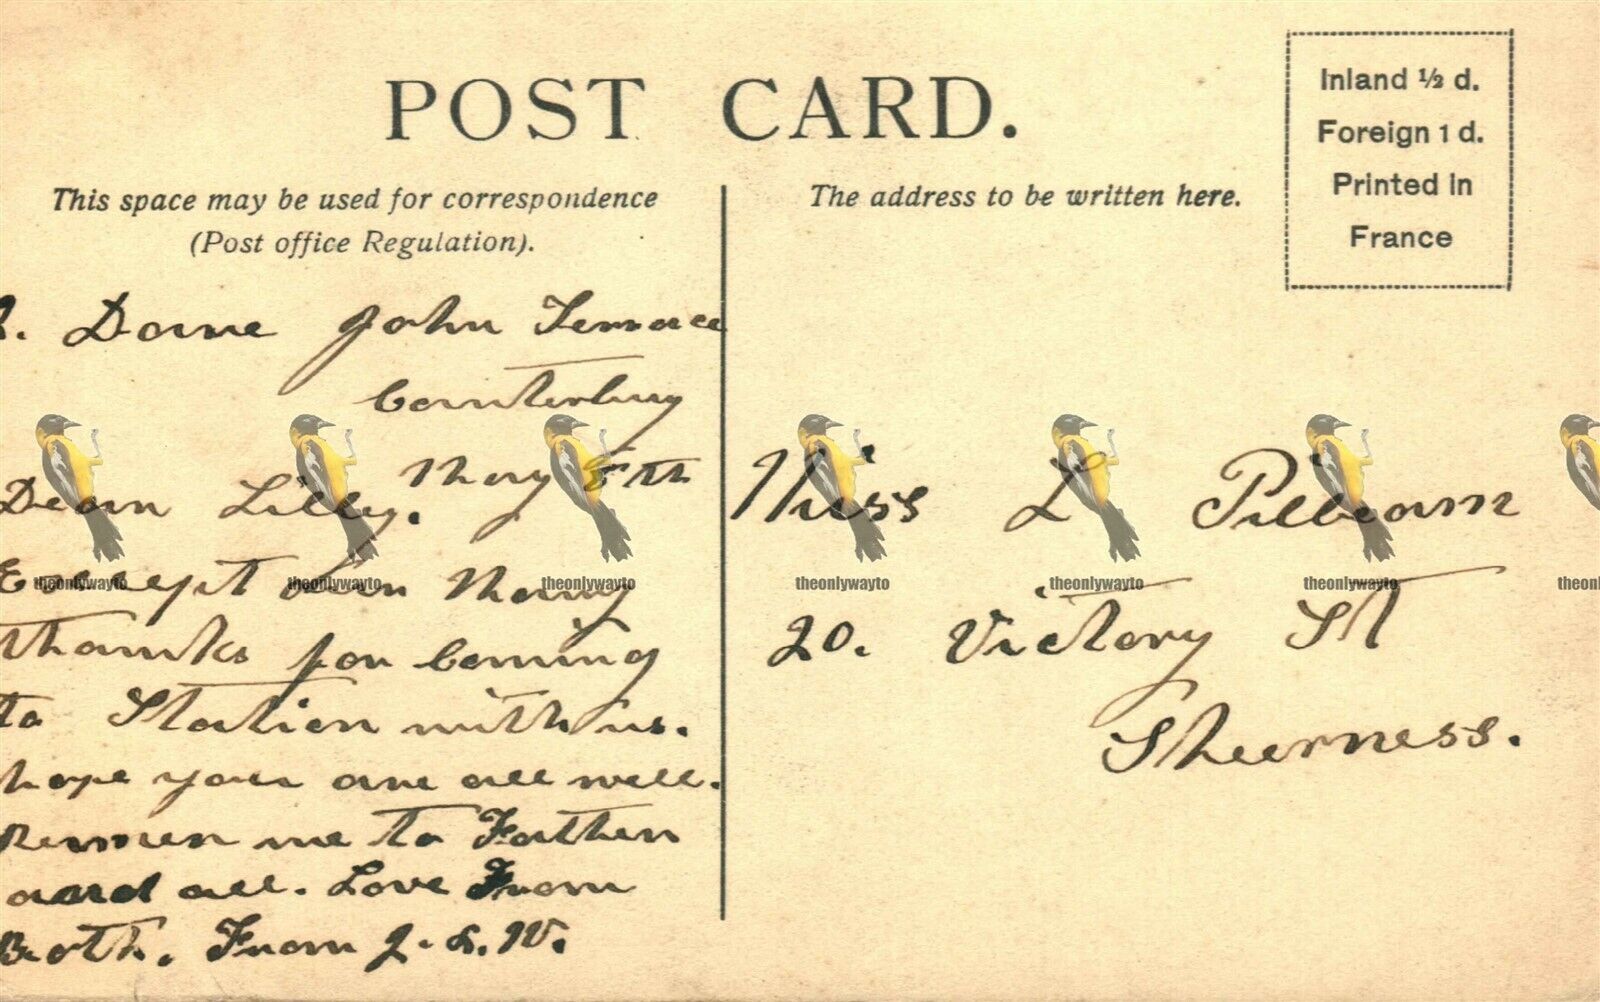 POST CARD.
Inland ½ d.
Foreign 1 d.
Printed in
France
This space may be used for correspondence
(Post office Regulation).
The address to be written here.
Dane John Terrace
Canterbury
May 8th
Dear Lilly.
Except our Many
thanks for Coming
to Station with us.
hope your are all well.
Remember me to Father
and all. Love From
Both. From J. & W.
Miss L Pilbeam
20. Victory St
Sheerness.
theonlywayto theonlywayto theonlywayto theonlywayto theonlywayto theonlywayto